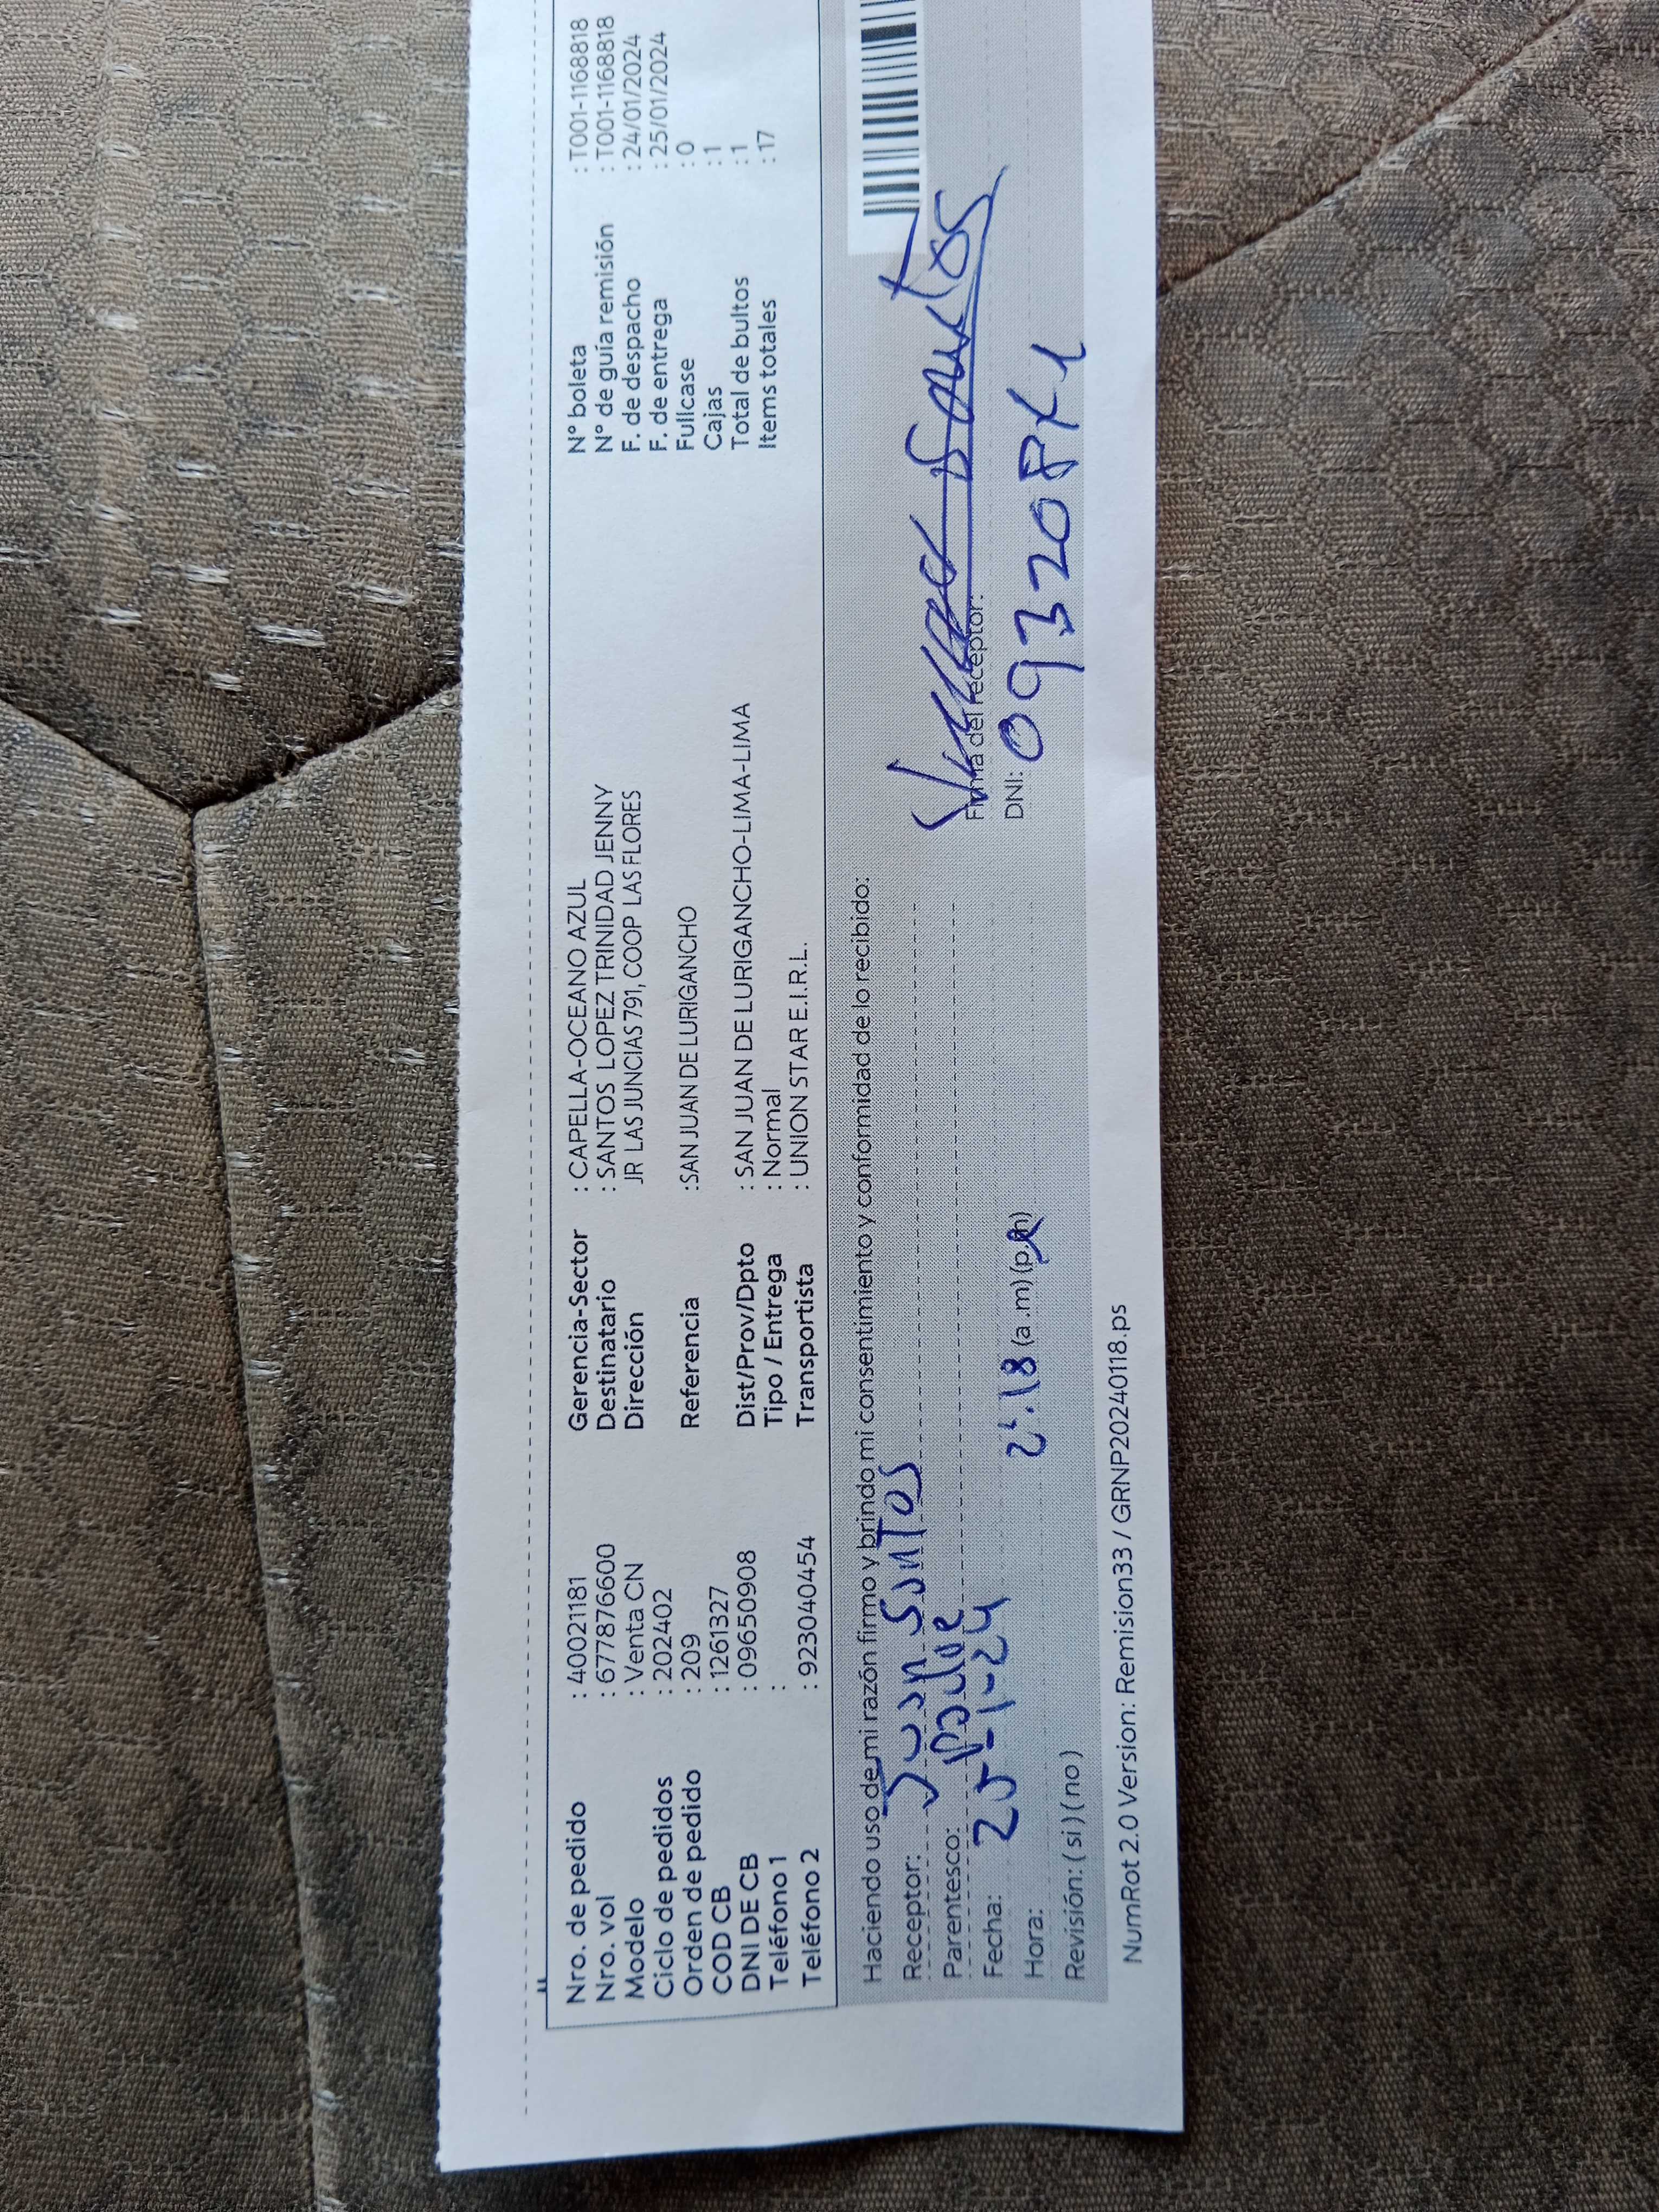 Nro. de pedido : 40021181
Nro. vol : 677876600
Modelo : Venta CN
Ciclo de pedidos : 202402
Orden de pedido : 209
COD CB : 1261327
DNI DE CB : 09650908
Teléfono 1 :
Teléfono 2 : 923040454
Gerencia-Sector : CAPELLA-OCEANO AZUL
Destinatario : SANTOS LOPEZ TRINIDAD JENNY
Dirección JR LAS JUNCIAS 791, COOP LAS FLORES
Referencia :SAN JUAN DE LURIGANCHO
Dist/Prov/Dpto : SAN JUAN DE LURIGANCHO-LIMA-LIMA
Tipo / Entrega : Normal
Transportista : UNION STAR E.I.R.L.
N° boleta : T001-1168818
N° de guía remisión : T001-1168818
F. de despacho : 24/01/2024
F. de entrega : 25/01/2024
Fullcase : 0
Cajas : 1
Total de bultos : 1
Items totales : 17
Haciendo uso de mi razón firmo y brindo mi consentimiento y conformidad de lo recibido:
Receptor: Juan Santos
Parentesco: Padre
Fecha: 25-1-24
Hora: (a.m) (p.m)
Revisión: ( si ) ( no )
Santos
Firma del receptor:
DNI:
NumRot 2.0 Version: Remision33 / GRNP20240118.ps